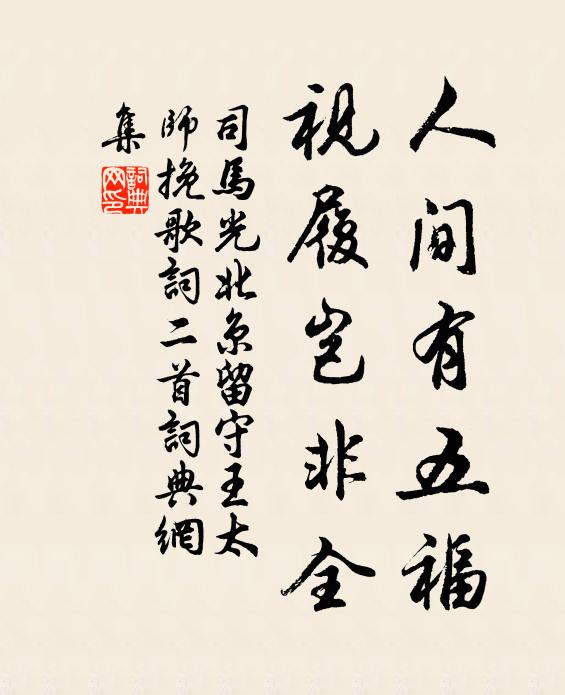 人間有五福
視履豈非全
司馬光北京留守王太
師挽歌詞二首詞典網
集
詞典
网印